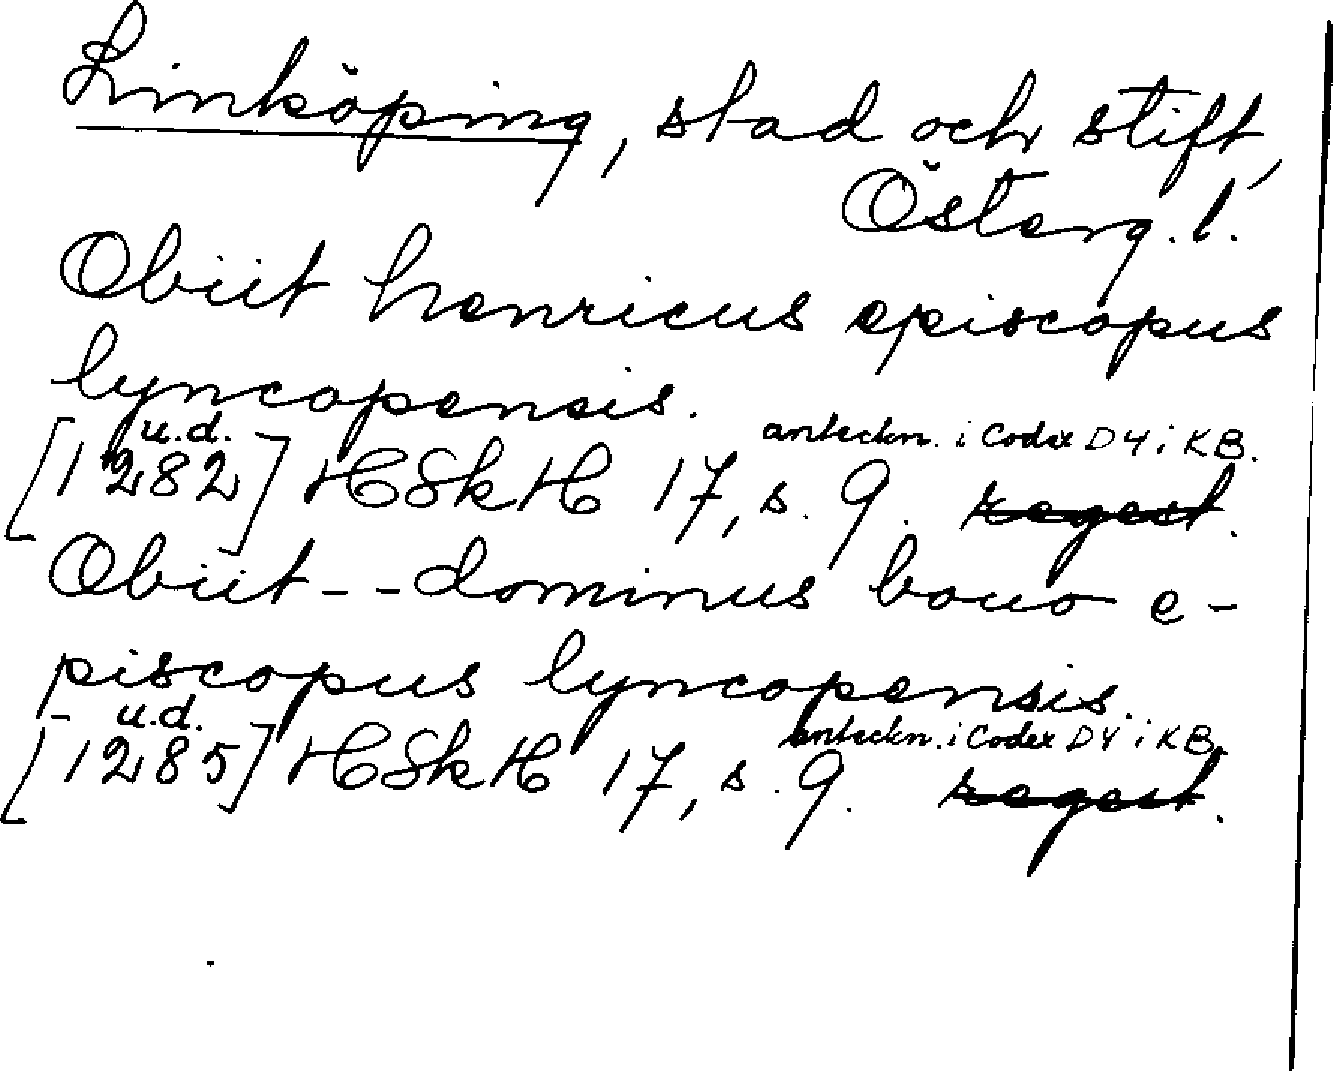 Linköping, stad och stift,
Österg. l.
Obiit henricus episcopus
lyncopensis.
u.d. anteckn. i Codex D4 i KB.
[1282] HSkH 17, s. 9. regest.
Obiit -- dominus bouo e-
piscopus lyncopensis.
u.d. anteckn. i Codex D4 i KB.
[1285] HSkH 17, s. 9. regest.